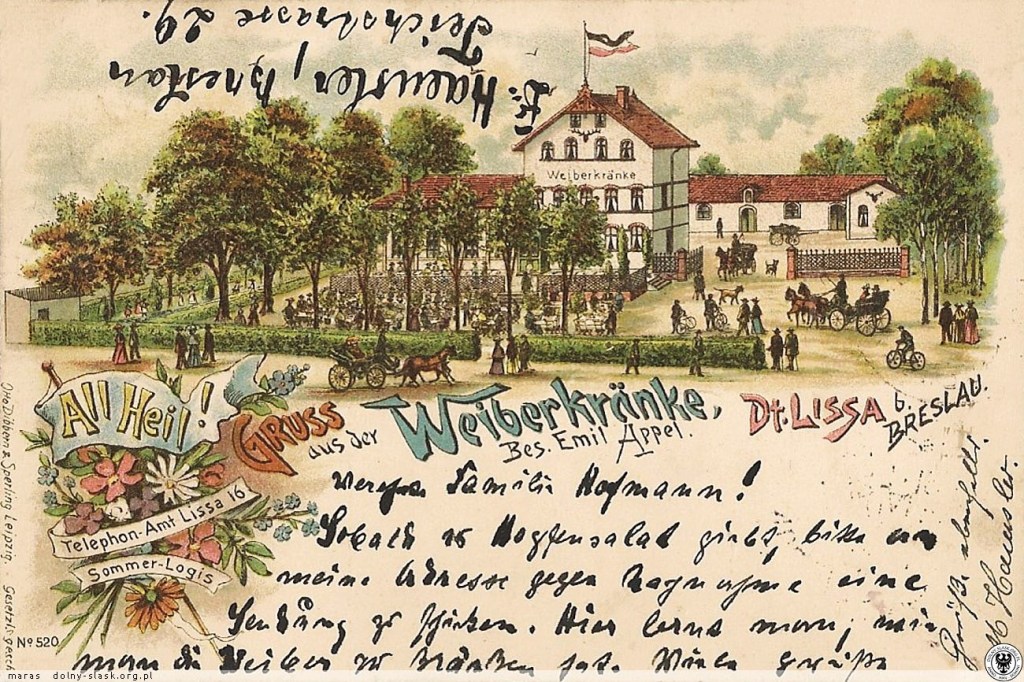 Fr. Haeusler, Breslau
Teichstrasse 29.
Weiberkränke
All Heil!
Gruss
aus der
Weiberkränke,
Bes. Emil Appel.
Dt. Lissa b.
Breslau.
Telephon-Amt Lissa 16
Sommer-Logis
Otto Dibbern & Sperling Leipzig. Gesetzl. gesch.
No 520
Familie Hofmann!
Sobald giebt, bitte an
meine Adresse gegen Nagnahme eine
Sendung zu schicken. Hier lernt man, wie
man die Weiber zu kränken hat. Viele Grüße
Grüße ebenfalls.
M Haeusler.
maras dolny-slask.org.pl